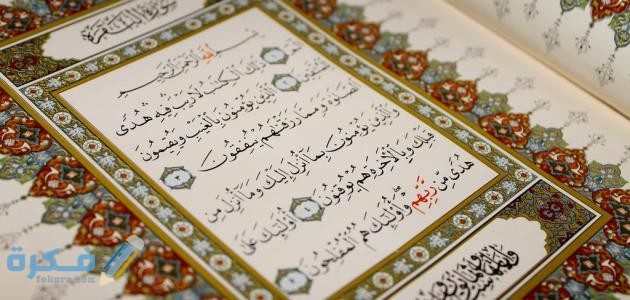 سُورَةُ الْبَقَرَةِ
بِسْمِ اللَّهِ الرَّحْمَٰنِ الرَّحِيمِ
الٓمٓ ١ ذَٰلِكَ الْكِتَٰبُ لَا رَيْبَ فِيهِ هُدًى
لِّلْمُتَّقِينَ ٢ الَّذِينَ يُؤْمِنُونَ بِالْغَيْبِ وَيُقِيمُونَ
الصَّلَوٰةَ وَمِمَّا رَزَقْنَٰهُمْ يُنفِقُونَ ٣
وَالَّذِينَ يُؤْمِنُونَ بِمَا أُنزِلَ إِلَيْكَ وَمَا أُنزِلَ مِن
قَبْلِكَ وَبِالْآخِرَةِ هُمْ يُوقِنُونَ ٤ أُولَٰئِكَ عَلَىٰ
هُدًى مِّن رَّبِّهِمْ وَأُولَٰئِكَ هُمُ الْمُفْلِحُونَ ٥
فكرة
fekera.com